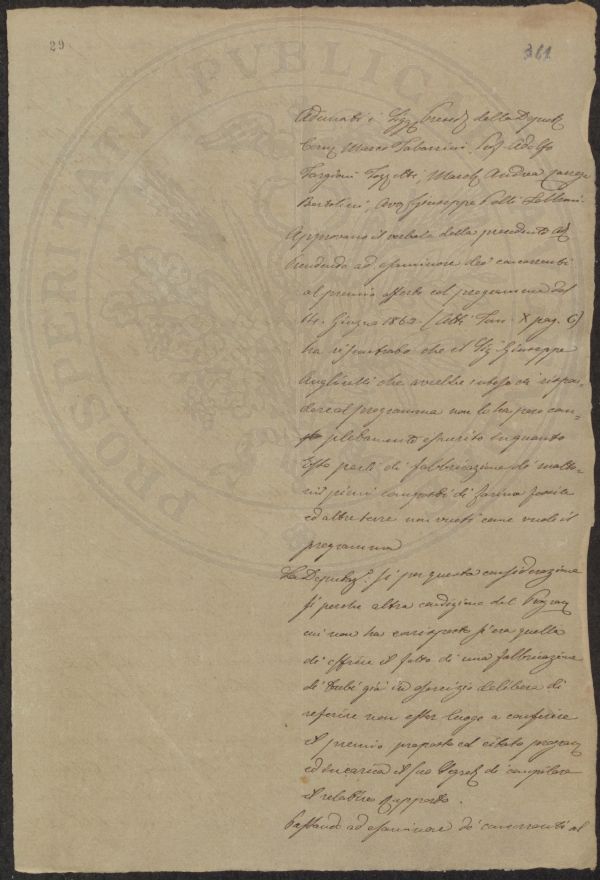 29
361
PROSPERITATI PVBLICAE
Adunati i Sigg. della Deput
Marco Tabarrini Adolfo
Targioni Tozzetti, March Andrea
Bartolini, Avv Giuseppe
Approvano il verbale della precedente
Prendendo ad esaminare dei concorrenti
al premio offerto col programma del
14. Giugno 186 (Atti X pag. 6)
ha riscontrato che il Sig. Giuseppe
che avrebbe inteso di rispon-
dere al programma non lo ha però com-
pletamente esaurito inquanto
Esso parli di fabbricazione di matto-
ni pieni composti di farina fossile
ed altre terre non vuoti come vuole il
programma
La Deputaz. sì per questa considerazione
sì perché altra condizione del Program
cui non ha corrisposto si era quella
di offrire il fatto di una fabbricazione
di tubi già in esercizio delibera di
referire non esser luogo a conferire
il premio proposto col citato program
ed incarica il suo Segret di compilare
il relativo Rapporto.
Passando ad esaminare dei concorrenti al